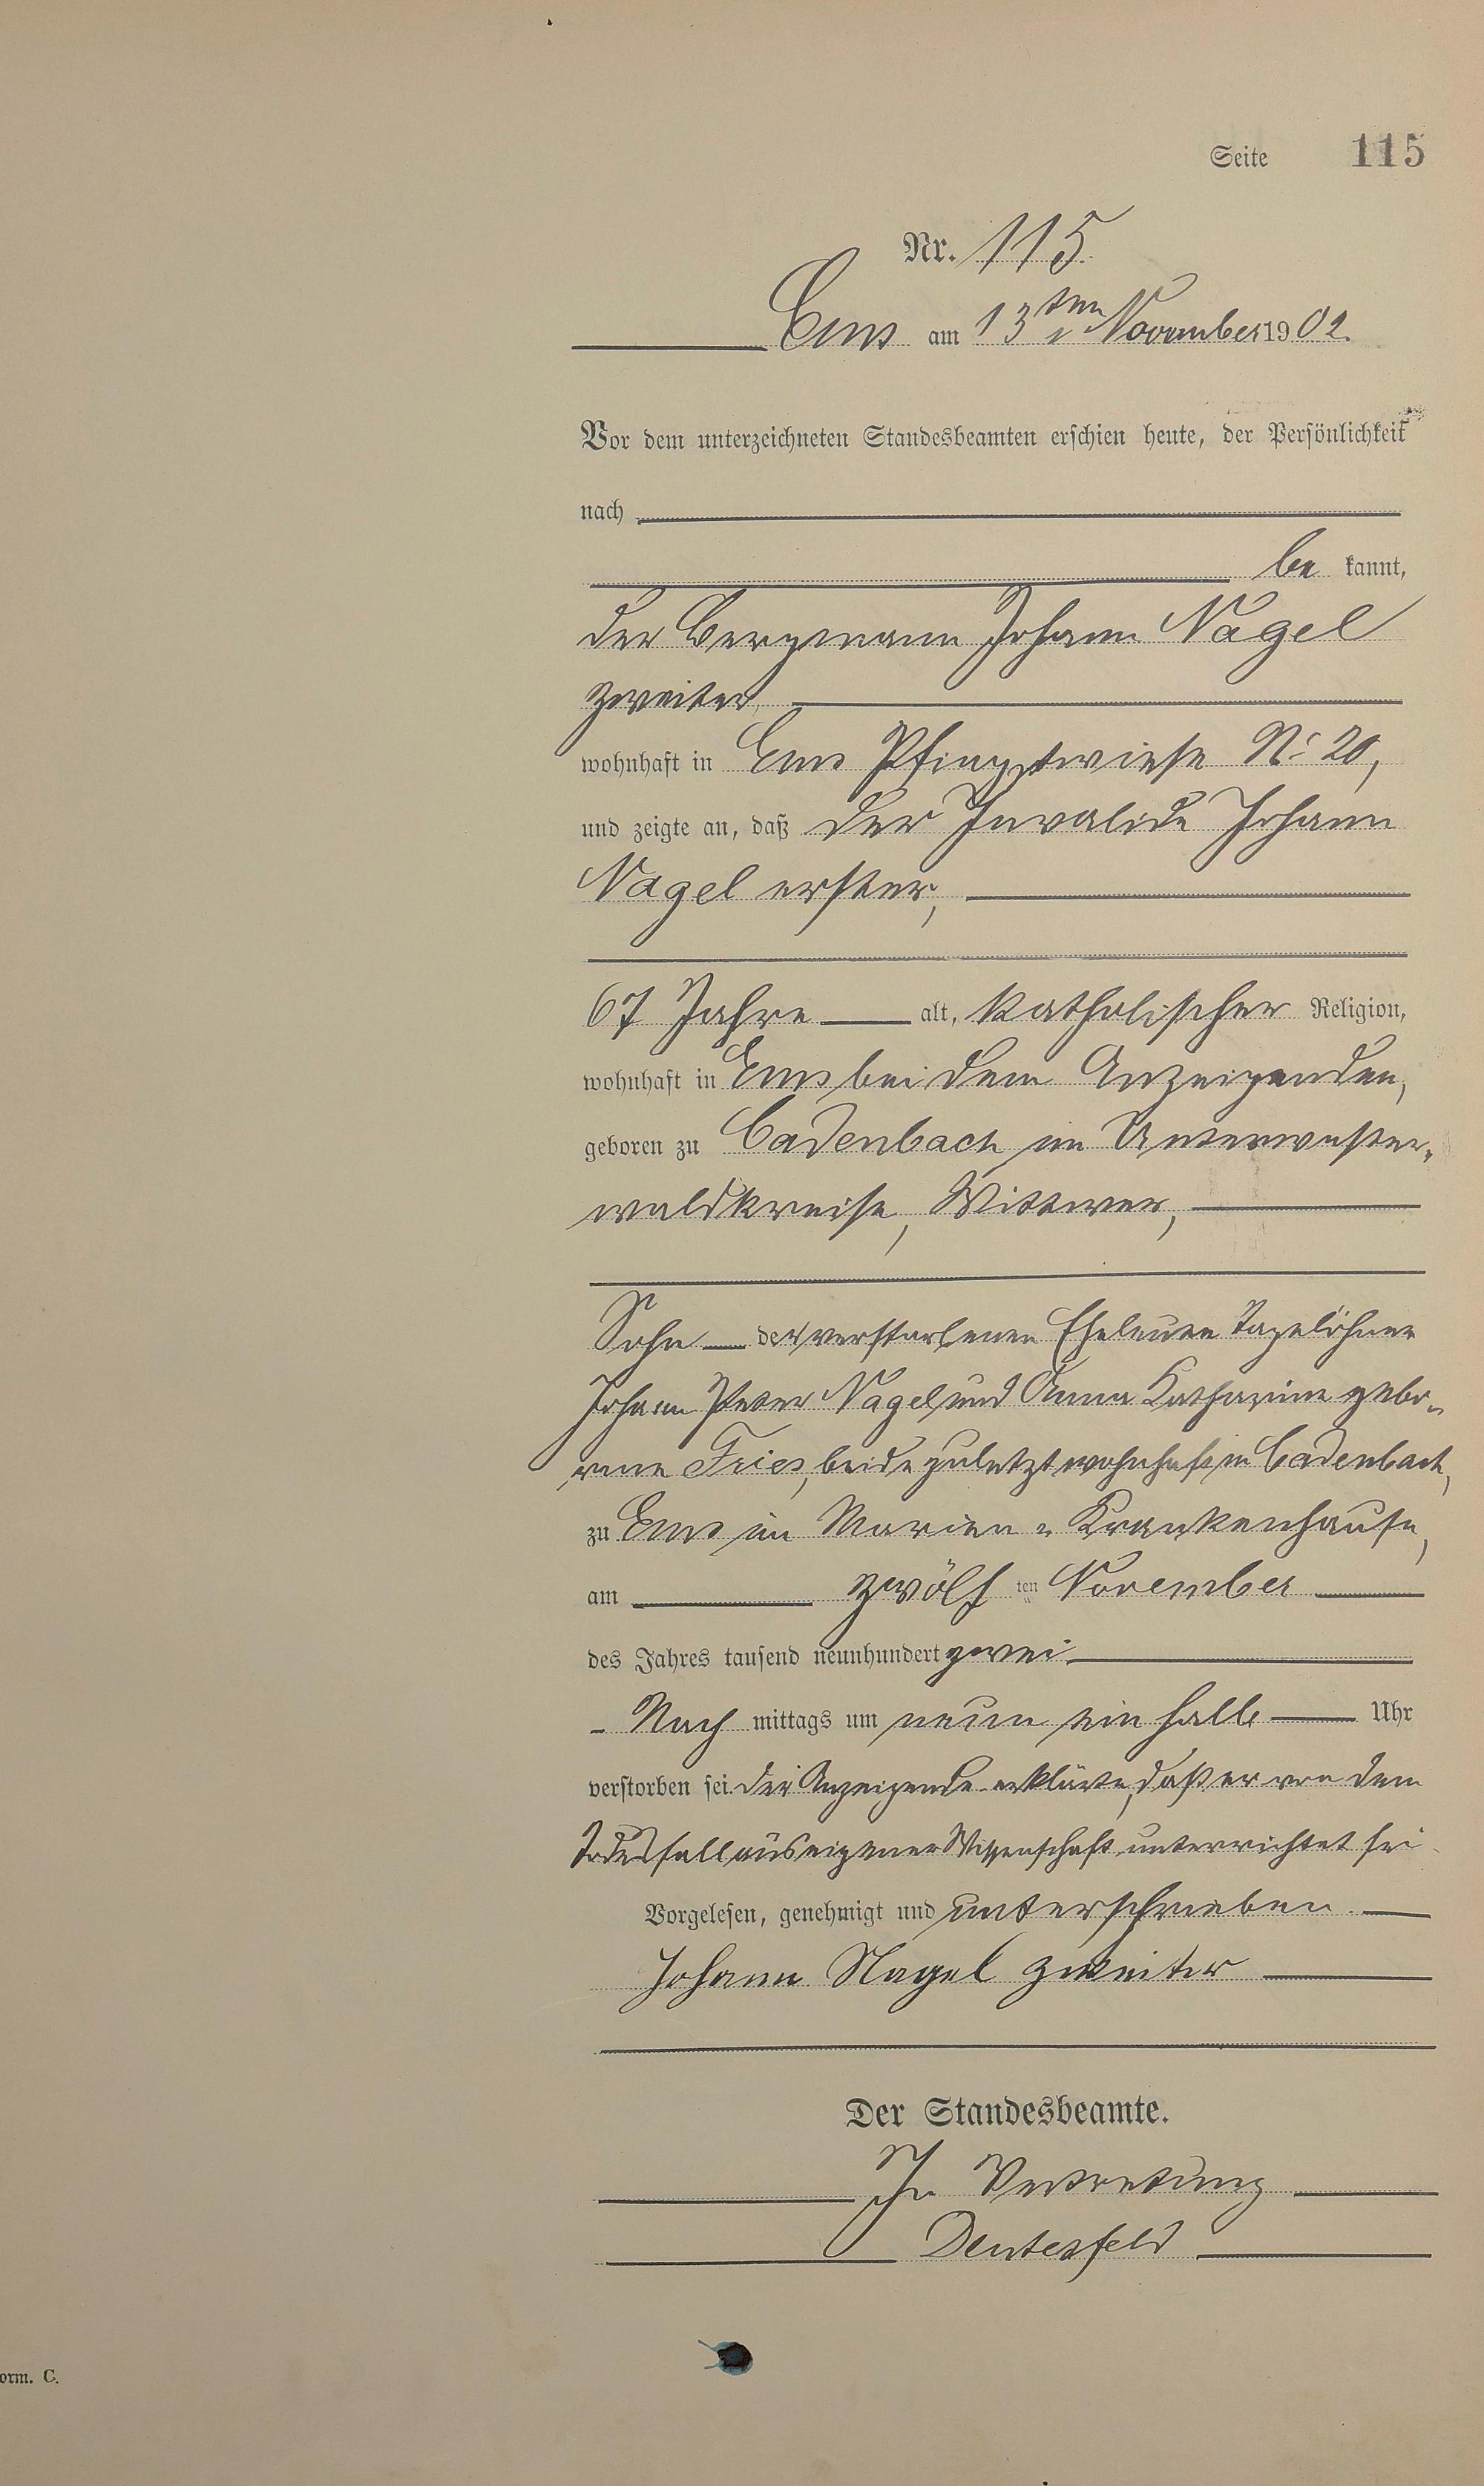 Seite 115
Nr. 115.
Ems am 13ten November 1902.
Vor dem unterzeichneten Standesbeamten erschien heute, der Persönlichkeit
nach
be kannt,
der Bergmann Johann Nagel
zweiter,
wohnhaft in Ems Pfingstwiese No 20,
und zeigte an, daß der Invalide Johann
Nagel erster,
67 Jahre alt, katholischer Religion,
wohnhaft in Ems bei dem Anzeigenden,
geboren zu Cadenbach im Unterwester-
waldkreise, Wittwer,
Sohn der verstorbenen Eheleute Tagelöhner
Johann Peter Nagel und Anna Katharine gebo-
rene Fries, beide zuletzt wohnhaft in Cadenbach,
zu Ems im Marien-Krankenhause,
am zwölf ten November
des Jahres tausend neunhundert zwei
Nach mittags um neun ein halb Uhr
verstorben sei. Der Anzeigende erklärte, daß er von dem
Todesfall aus eigener Wissenschaft unterrichtet sei.
Vorgelesen, genehmigt und unterschrieben.
Johann Nagel zweiter
Der Standesbeamte.
In Vertretung
Deutesfeld
orm. C.